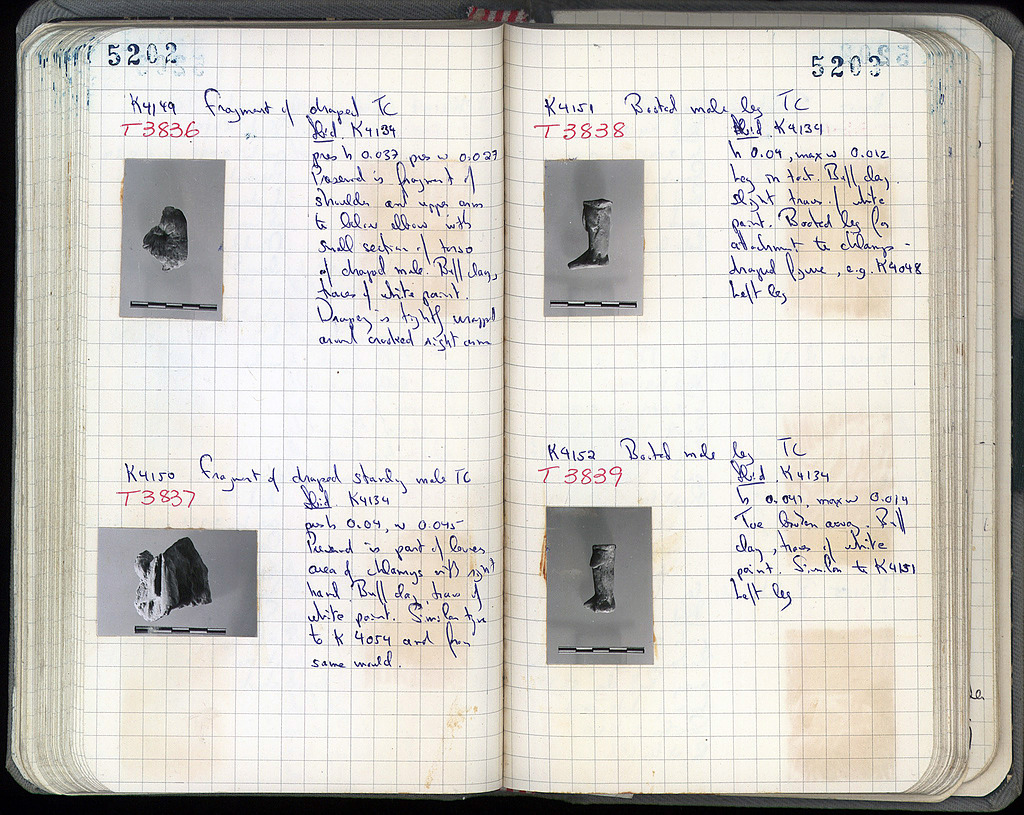 5202
K4149 Fragment of draped TC
T3836
Ibid K4134
pres h 0.037 pres w 0.027
Preserved is fragment of
shoulder and upper arm
to below elbow with
small section of torso
of draped male. Buff clay,
traces of white paint.
Drapery is tightly wrapped
around crooked right arm
K4150 Fragment of draped standg male TC
T3837
Ibid. K4134
pres h 0.04, w 0.045
Preserved is part of lower
area of chlamys with right
hand Buff clay, traces of
white paint. Similar type
to K 4054 and from
same mould.
5203
K4151 Booted male leg TC
T3838
Ibid. K4134
h 0.04, max w 0.012
Leg in toto. Buff clay.
slight traces of white
paint. Booted leg for
attachment to chlamys-
draped figure, e.g. K4048
Left leg
K4152 Booted male leg TC
T3839
Ibid. K4134
h 0.041, max w 0.014
Toe broken away. Buff
clay, traces of white
paint. Similar to K4151
Left leg